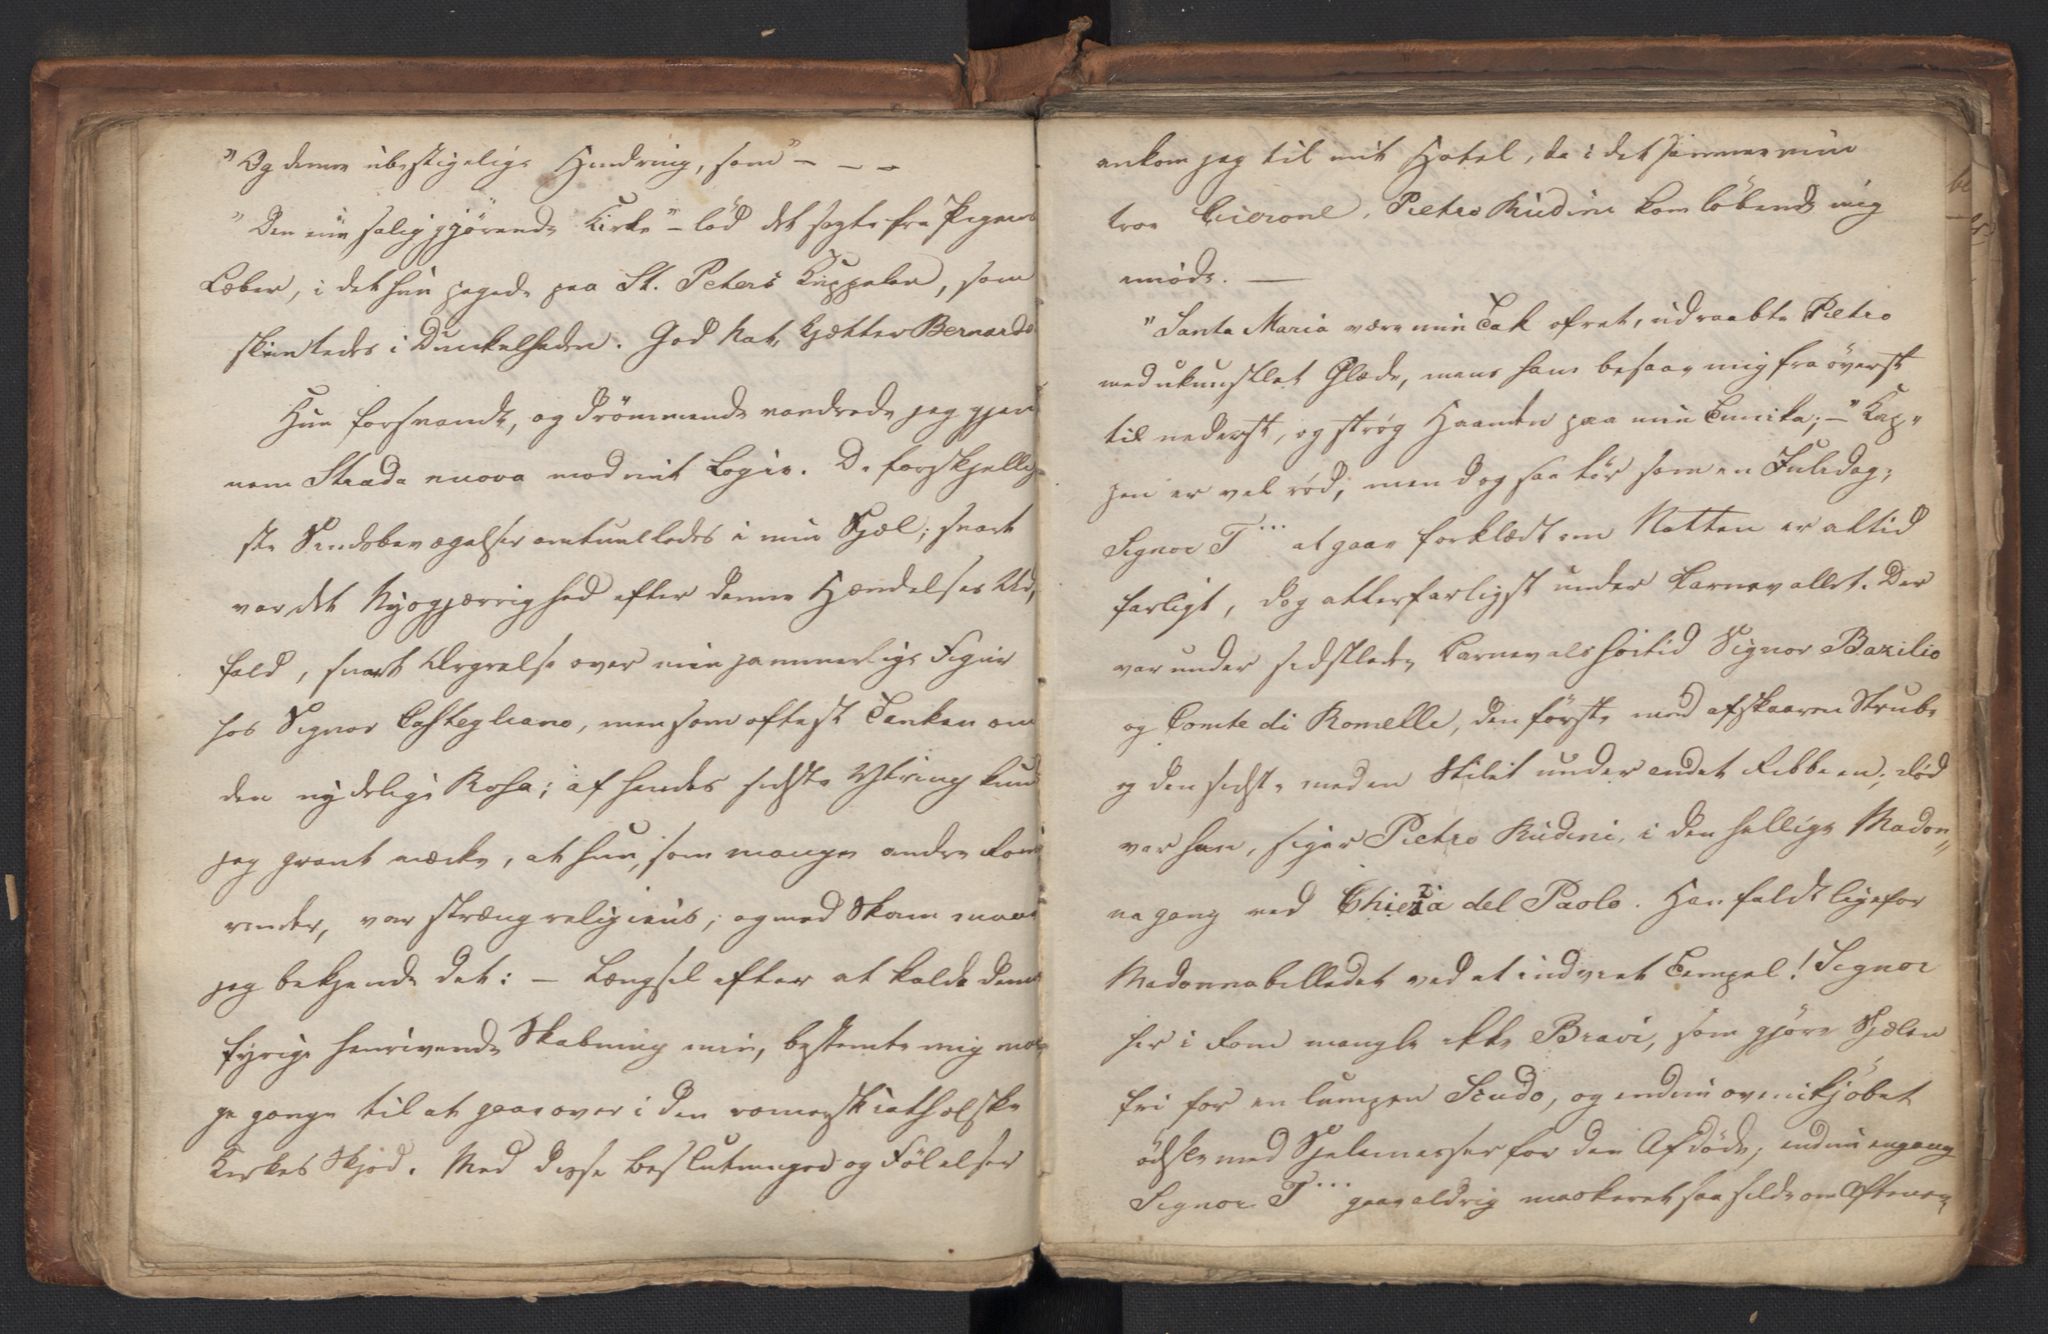 "Og denne ubestigelige Hindring, som" – – –
"Den ene saliggjørende Kirke" – lød det sagte fra Pigens
Læber, i det hun pegede paa St. Peters Kuppelen, som
skimtedes i Dunkelheden. God Nat, Kjætter Bernardo
Hun forsvandt, og drömmende vandrede jeg gjen
nem Strada nuova mod mit Logis. De forskjellig
ste Sindsbevægelser omtumledes i min Sjæl; snart
var det Nysgjærrighed efter denne Hændelses Ud,
fald, snart Ærgrelse over min jammerlige Figur
hos Signor Castegliano, men som oftest Tanken om
den nydelige Rosa; af hendes sidste Yttring kund
jeg grant mærke, at hun, som mange andre Rom
rinder, var stræng religieus; og med Skam maae
jeg bekjende det: – Længsel efter at kalde denne
fyrige henrivende Skabning min, bestemte mig man
ge gange til at gaae over i den romerskcatholske
Kirkes Skjød. Med disse Beslutninger og Fölelser
ankom jeg til mit Hotel, da i det samme min
troe Cicerone, Pietro Rudini kom löbende mig
imöde. —
"Santa Maria være min Tak ofret, udraabte Pietro
med ukunstlet Glæde, mens han besaae mig fra överst
til nederst, og strög Haanden paa min Tunika; – "Kap„
pen er vel röd, men dog saa tör som en Juledag;
Signor T... at gaae forklædt om Natten er altid
farligt, dog allerfarligst under Carnevallet. Der
var under sidstledne Carnevalshöitid Signor Bazilio
og Comte di Romelle, den förste med afskaaren Strube
og den sidste med en Stilet under andet Ribbeen; död
var han, siger Pietro Rudini, i den hellige Madon„
nagang ved Chieza del Paolo. Han faldt ligefor
Madonnabilledet ved et indviet Tempel! Signor
her i Rom mangle ikke Bravi, som gjöre Sjælen
fri for en lumpen Scudo, og endnu ovenikjöbet
ödsle med Sjelemesser for den Afdöde; endnu engang
Signor T... gaae aldrig maskeret saa silde om Aftenen,